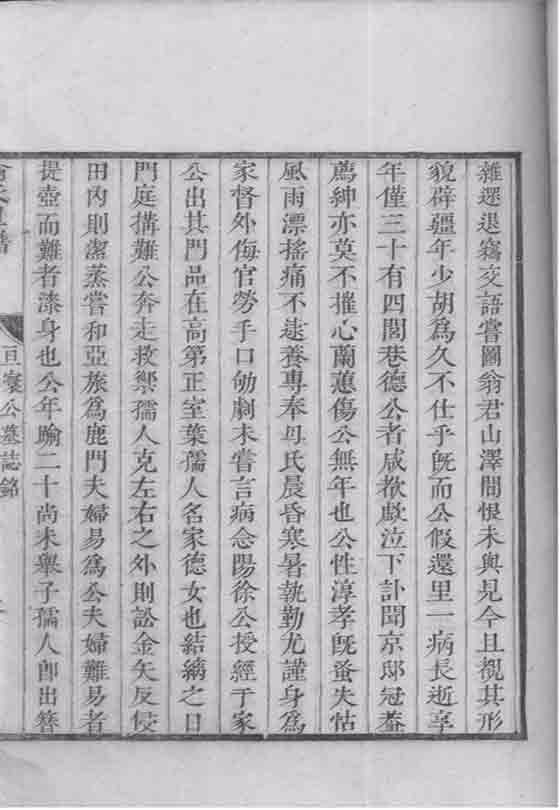 雜遝退竊交語嘗圖翁君山澤間恨未與見今且視其形
貌辟疆年少胡爲久不仕乎旣而公假還里一病長逝享
年僅三十有四閭巷德公者咸欷歔泣下訃聞京邸冠葢
薦紳亦莫不摧心蘭蕙傷公無年也公性淳孝旣蚤失怙
風雨漂搖痛不逮養專奉母氏晨昏寒暑執勤尤謹身爲
家督外侮官勞手口劬劇未嘗言病念陽徐公授經于家
公出其門品在高第正室葉孺人名家德女也結縭之日
門庭搆難公奔走救禦孺人克左右之外則訟金矢反侵
田內則潔蒸嘗和亞旅爲鹿門夫婦易爲公夫婦難易者
提壺而難者漆身也公年踰二十尚未舉子孺人卽出簪
旦寰公墓誌銘